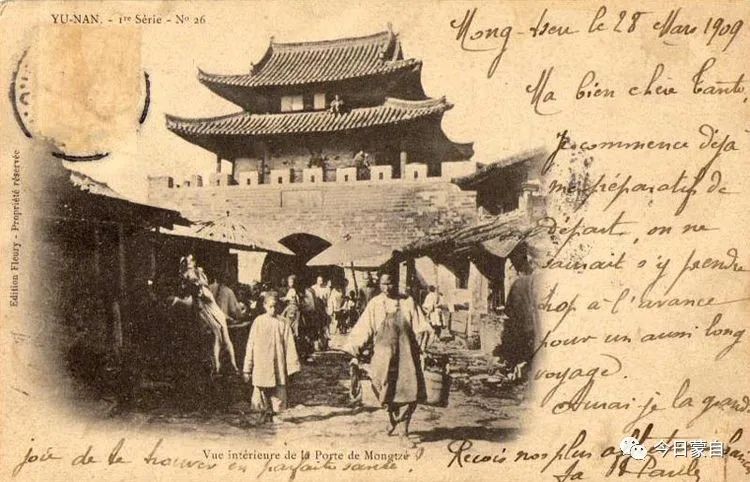 YU-NAN. - 1re Série - No 26
Mong-tseu le 28 Mars 1909
Ma bien chère Tante,
Je commence déja
me préparatif de
départ, on ne
saurait s'y prendre
trop à l'avance
pour un aussi long
voyage.
Aurai-je la grande
joie de te trouver en parfaite santé.
Reçois nos plus
Edition Fleury - Propriété réservée
Vue intérieure de la Porte de Mongtzé
今日蒙自